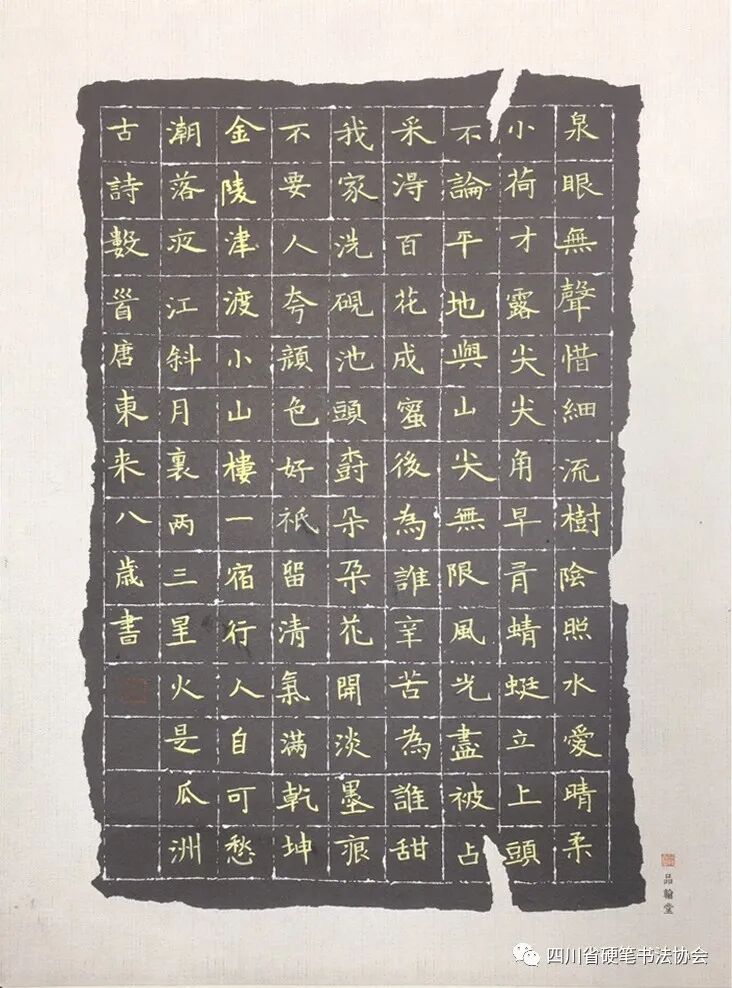 泉眼無聲惜細流樹陰照水愛晴柔
小荷才露尖尖角早有蜻蜓立上頭
不論平地與山尖無限風光盡被占
采得百花成蜜後為誰辛苦為誰甜
我家洗硯池頭樹朵朵花開淡墨痕
不要人夸顔色好祇留清氣滿乾坤
金陵津渡小山樓一宿行人自可愁
潮落夜江斜月裏两三星火是瓜洲
古詩數首唐東来八歲書
品翰堂
四川省硬笔书法协会